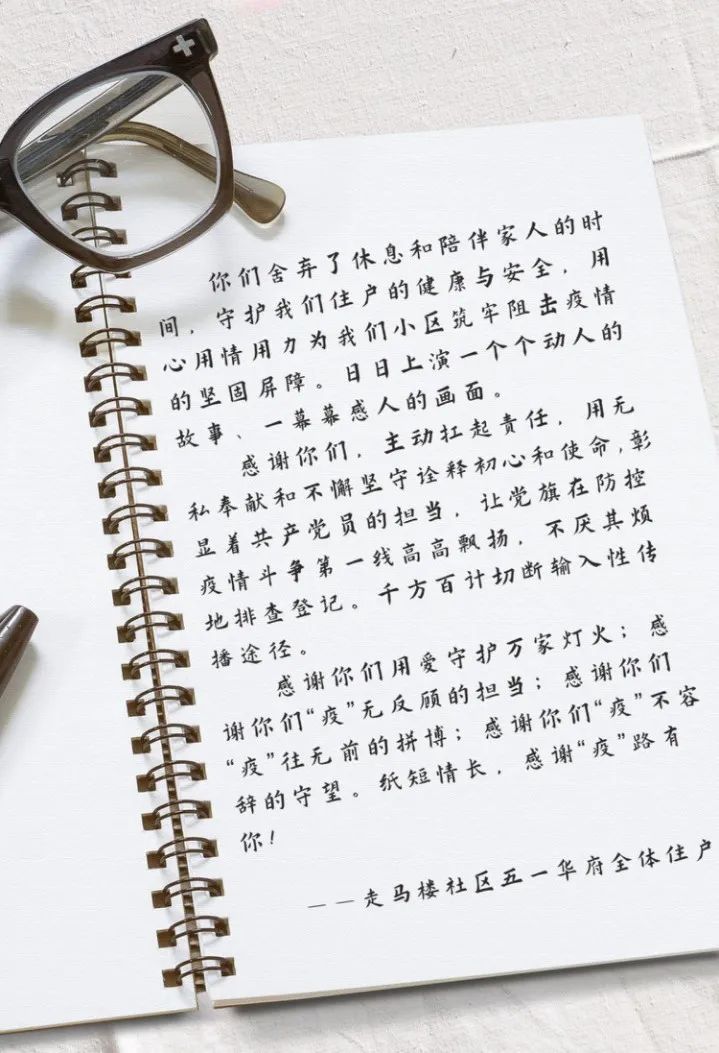 你们舍弃了休息和陪伴家人的时
间，守护我们住户的健康与安全，用
心用情用力为我们小区筑牢阻击疫情
的坚固屏障。日日上演一个个动人的
故事、一幕幕感人的画面。
感谢你们，主动扛起责任，用无
私奉献和不懈坚守诠释初心和使命，彰
显着共产党员的担当，让党旗在防控
疫情斗争第一线高高飘扬，不厌其烦
地排查登记。千方百计切断输入性传
播途径。
感谢你们用爱守护万家灯火；感
谢你们“疫”无反顾的担当；感谢你们
“疫”往无前的拼博；感谢你们“疫”不容
辞的守望。纸短情长，感谢“疫”路有
你！
——走马楼社区五一华府全体住户